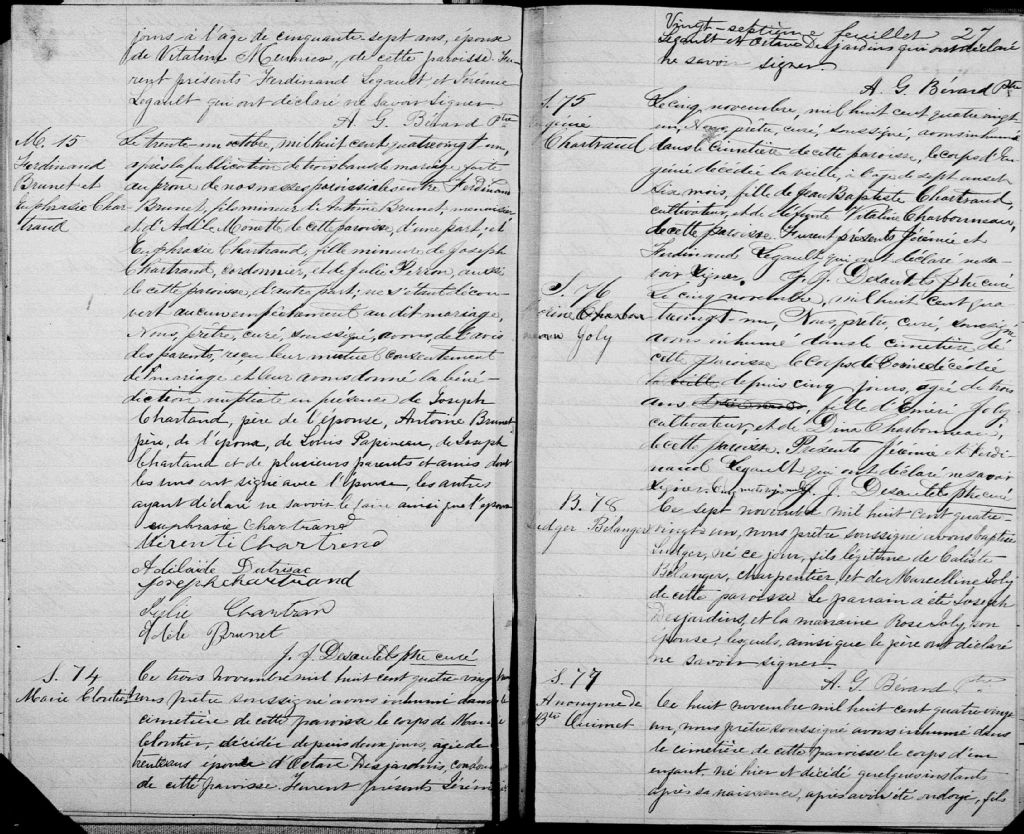 jours à l'âge de cinquante sept ans, épouse
de Vitalim Meunier, de cette paroisse. Fu-
rent présents Ferdinand Legault et Jérémie
Legault qui ont déclaré ne savoir signer
A. G. Bérard Ptre
M. 15
Ferdinand
Brunet et
Euphrasie Char-
trand
Le trente-un octobre, mil huit cent quatrevingt un,
après la publication de trois bans de mariage faite
au prône de nos messes paroissiales entre Ferdinand
Brunet, fils mineur de Antoine Brunet, menuisier
et d'Adèle Monette de cette paroisse, d'une part; et
Euphrasie Chartrand, fille mineure de Joseph
Chartrand, cordonnier, et de Julie Perron, aussi
de cette paroisse, d'autre part; ne s'étant décou-
vert aucun empêchement au dit mariage,
Nous, prêtre, curé, soussigné, avons, de l'avis
des parents, reçu leur mutuel consentement
de mariage et leur avons donné la béné-
diction nuptiale en présence de Joseph
Chartrand, père de l'épouse, Antoine Brunet
père, de l'époux, de Louis Papineau, de Joseph
Chartrand et de plusieurs parents et amis dont
les uns ont signé avec l'épouse, les autres
ayant déclaré ne savoir le faire ainsi que l'époux
euphrasie Chartrand
Chartrend
Adélaïde Dutrisac
Joseph chartrand
Chartran
Adele Brunet
J. J. Desautels ptre curé
S. 74
Marie Cloutier
Ce trois novembre mil huit cent quatre vingt
nous prêtre soussigné avons inhumé dans le
cimetière de cette paroisse le corps de Marie
Cloutier, décédée depuis deux jours, agée de
trente ans épouse d'Octave Desjardins,
de cette paroisse. Furent présents Jérémie
Vingt-septième feuillet 27
Legault et Octave Desjardins qui ont déclaré
ne savoir signer.
A. G. Bérard Ptre
S. 75
Eugénie
Chartrand
Le cinq, novembre, mil huit cent quatre vingt
un, Nous, prêtre, curé, soussigné, avons inhumé
dans le cimetière de cette paroisse, le corps d'Eu-
génie décédée la veille, à l'age de sept ans et
six mois, fille de Jean Baptiste Chartrand,
cultivateur, et de défunte Vitaline Charbonneau,
de cette paroisse. Furent présents Jérémie et
Ferdinand Legault qui ont déclaré ne sa-
voir signer. J. J. Desautels ptre curé
S. 76
Charbon
neau Joly
Le cinq novembre, mil huit cent qua
trevingt-un, Nous, prêtre, curé, soussigné
avons inhumé dans le cimetière de
cette paroisse le corps de décédée
la veille depuis cinq jours, agée de trois
ans, fille d'Émeri Joly
cultivateur, et de Dina Charbonneau,
de cette paroisse. Présents Jérémie et Ferdi-
nand Legault qui ont déclaré ne savoir
signer. J. J. Desautels ptre curé
B. 78
Ludger Bélanger
Ce sept novembre mil huit cent quatre-
vingt un, nous prêtre soussigné avons baptisé
Ludger, né ce jour, fils légitime de Calixte
Bélanger, charpentier, et de Marcelline Joly
de cette paroisse. Le parrain a été Joseph
Desjardins, et la marraine Rose Joly, son
épouse, lesquels, ainsi que le père ont déclaré
ne savoir signer.
A. G. Bérard Ptre
S. 77
Anonyme de
Bte Ouimet
Ce huit novembre mil huit cent quatre vingt
un, nous prêtre soussigné avons inhumé dans
le cimetière de cette paroisse le corps d'un
enfant né hier et décédé quelques instants
après sa naissance, après avoir été ondoyé, fils